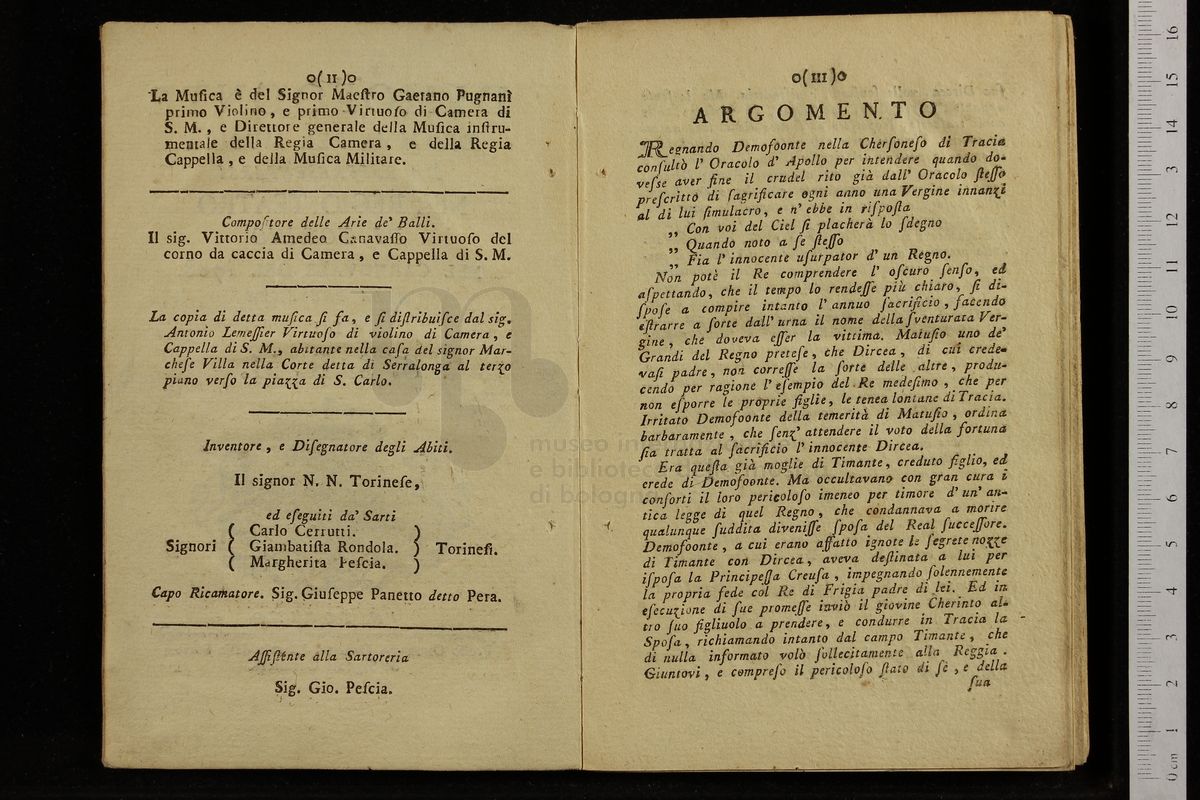 o( II )o
La Muſica è del Signor Maeſtro Gaetano Pugnani
primo Violino, e primo Virtuoſo di Camera di
S. M., e Direttore generale della Muſica inſtru-
mentale della Regia Camera, e della Regia
Cappella, e della Muſica Militare.
Compoſtore delle Arie de' Balli.
Il sig. Vittorio Amedeo Canavaſſo Virtuoſo del
corno da caccia di Camera, e Cappella di S. M.
La copia di detta muſica ſi fa, e ſi diſtribuiſce dal sig.
Antonio Lemeſſier Virtuoſo di violino di Camera, e
Cappella di S. M., abitante nella caſa del signor Mar-
cheſe Villa nella Corte detta di Serralonga al terzo
piano verſo la piazza di S. Carlo.
Inventore, e Diſegnatore degli Abiti.
Il signor N. N. Torineſe,
ed eſeguiti da' Sarti
( Carlo Cerrutti. )
Signori ( Giambatiſta Rondola. ) Torineſi.
( Margherita Peſcia. )
Capo Ricamatore. Sig. Giuſeppe Panetto detto Pera.
Aſſiſtente alla Sartoreria
Sig. Gio. Peſcia.
o( III )o
ARGOMENTO
Regnando Demofoonte nella Cherſoneſo di Tracia
conſultò l' Oracolo d' Apollo per intendere quando do-
veſse aver fine il crudel rito già dall' Oracolo ſteſſo
preſcritto di ſagrificare ogni anno una Vergine innanzi
al di lui ſimulacro, e n' ebbe in riſpoſta
„ Con voi del Ciel ſi placherà lo ſdegno
„ Quando noto a ſe ſteſſo
„ Fia l' innocente uſurpator d' un Regno.
Non potè il Re comprendere l' oſcuro ſenſo, ed
aſpettando, che il tempo lo rendeſſe più chiaro, ſi di-
ſpoſe a compire intanto l' annuo ſacrificio, facendo
eſtrarre a ſorte dall' urna il nome della ſventurata Ver-
gine, che doveva eſſer la vittima. Matuſio uno de'
Grandi del Regno preteſe, che Dircea, di cui crede-
vaſi padre, non correſſe la ſorte delle altre, produ-
cendo per ragione l' eſempio del Re medeſimo, che per
non eſporre le proprie figlie, le tenea lontane di Tracia.
Irritato Demofoonte della temerità di Matuſio, ordina
barbaramente, che ſenz' attendere il voto della fortuna
ſia tratta al ſacrificio l' innocente Dircea.
Era queſta già moglie di Timante, creduto figlio, ed
erede di Demofoonte. Ma occultavano con gran cura i
conſorti il loro pericoloſo imeneo per timore d' un' an-
tica legge di quel Regno, che condannava a morire
qualunque ſuddita diveniſſe ſpoſa del Real ſucceſſore.
Demofoonte, a cui erano affatto ignote le ſegrete nozze
di Timante con Dircea, aveva deſtinata a lui per
iſpoſa la Principeſſa Creuſa, impegnando ſolennemente
la propria fede col Re di Frigia padre di lei. Ed in
eſecuzione di ſue promeſſe inviò il giovine Cherinto al-
tro ſuo figliuolo a prendere, e condurre in Tracia la
Spoſa, richiamando intanto dal campo Timante, che
di nulla informato volò ſollecitamente alla Reggia.
Giuntovi, e compreſo il pericoloſo ſtato di ſè, e della
ſua
museo in
e bibliotec
di bologn
0 cm 1 2 3 4 5 6 7 8 9 10 11 12 13 14 15 16